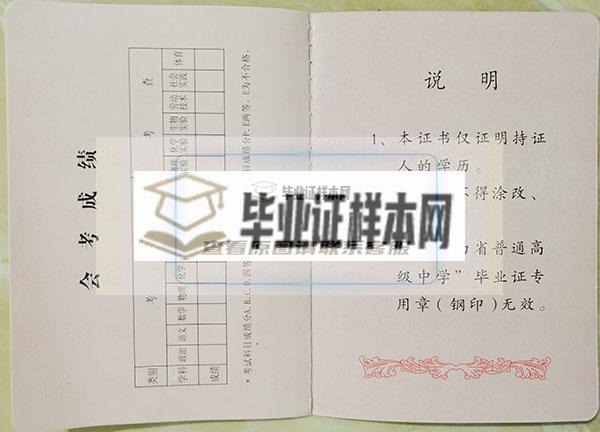 会考成绩
类别 考 考 查
学科 政治 语文 数学 物理 化学 化学实验 生物实验 劳动技术 社会实践 体育
成绩
*考试科目成绩分A、B、C、D四等
目成绩分P、E两等，E为不合格。
毕业证样本网
说明
1、本证书仅证明持证
人的学历。
不得涂改、
省普通高
级中学”毕业证专
用章（钢印）无效。